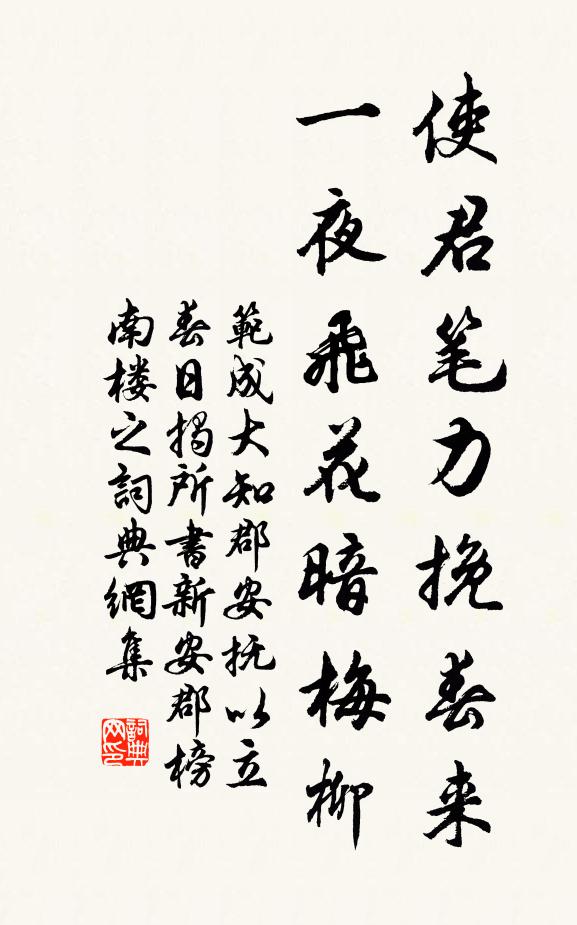 使君笔力挽春来
一夜飛花暗梅柳
範成大知郡安抚以立
春日揭所書新安郡榜
南楼之詞典網集
詞典
网印